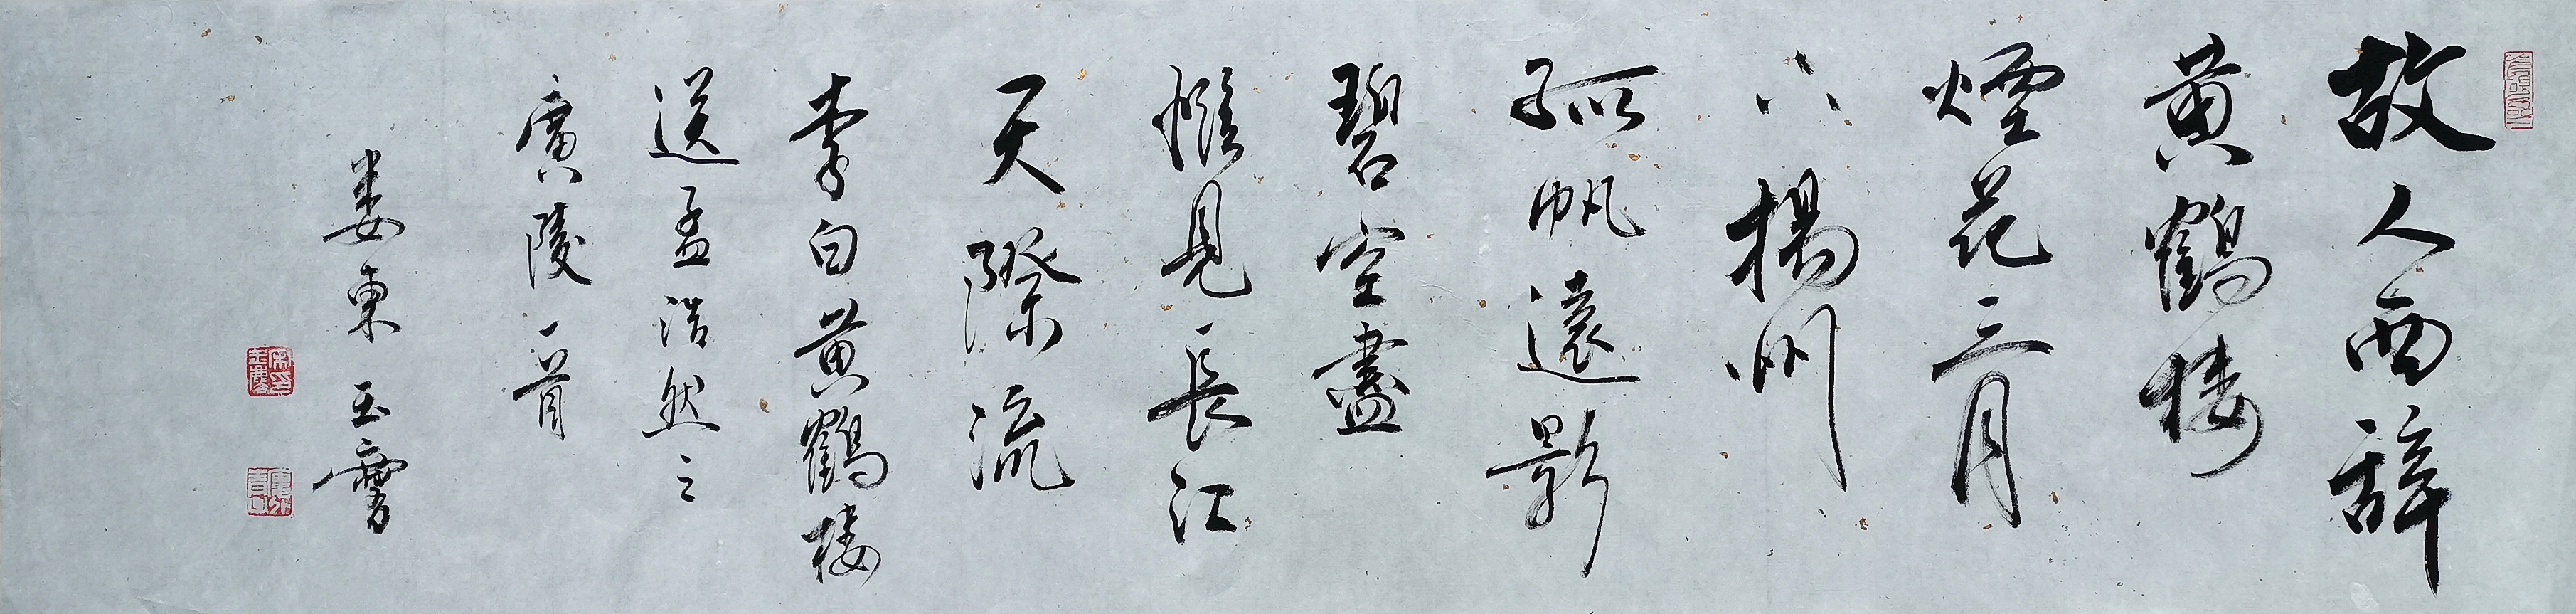 故人西辞
黄鹤楼
煙花三月
下揚州
孤帆遠影
碧空盡
惟見長江
天際流
李白黄鹤楼
送孟浩然之
廣陵一首
娄東玉霽